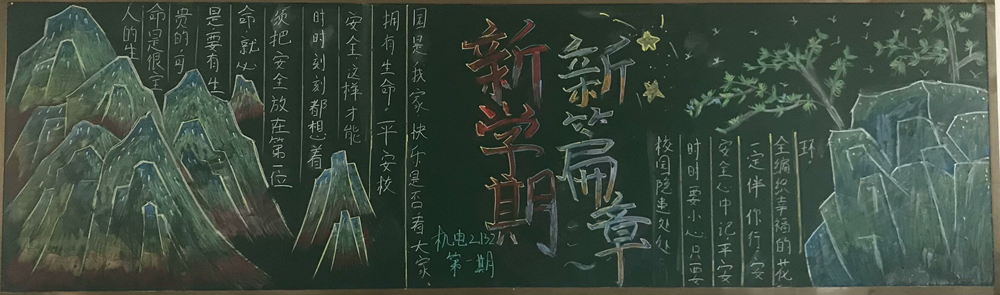 人的生
命是很宝
贵的,可
是要有生
命,就必
须把安全放在第一位
时时刻刻都想着
安全,这样才能
拥有生命!平安校
国是我家 快乐是否看大家.
新学期
新篇章
机电2132
第一期
校园隐患处处
时时要小心只要
安全心中记平安
一定伴你行安
全编织幸福的花
环